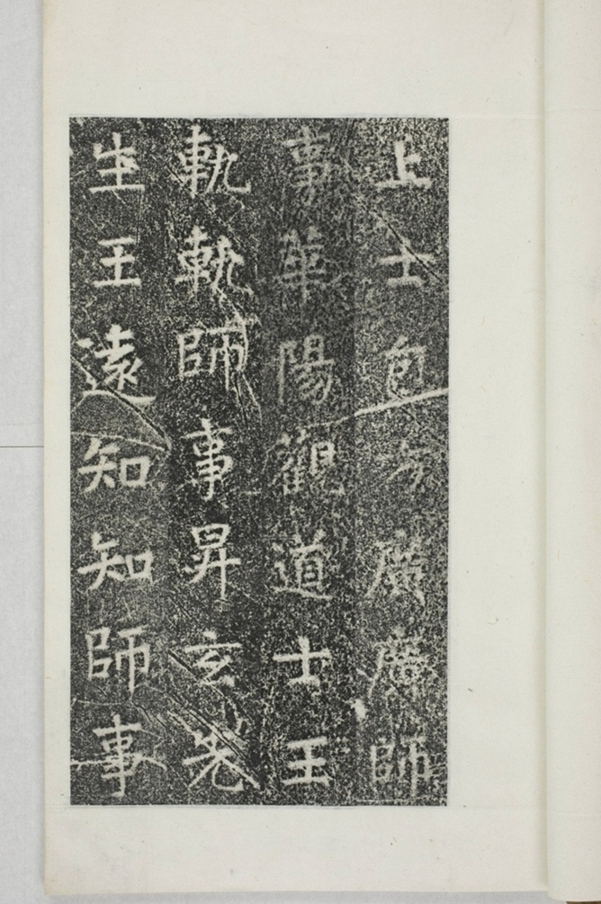 上士包方廣廣師
事華陽觀道士王
軌軌師事昇玄先
生王遠知知師事